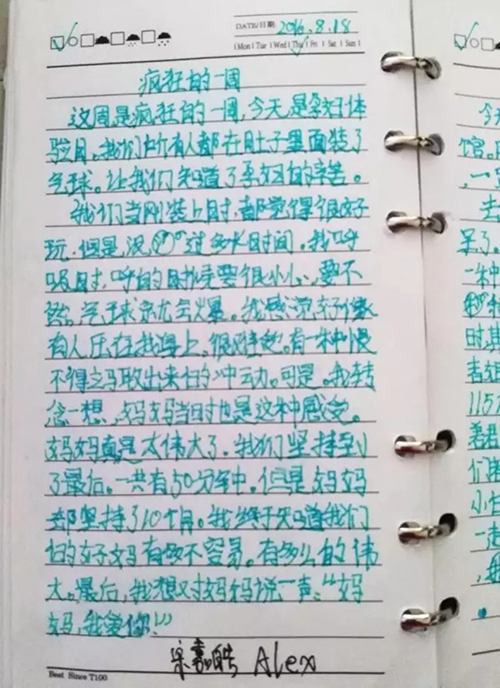 DATE/日期 2016.8.18
Mon Tue Wed Thu Fri Sat Sun
疯狂的一周
这周是疯狂的一周,今天是孕妇体
验日。我们所有人都在肚子里面装了
气球。让我们知道了孕妇的辛苦。
我们当刚装上时,都觉得很好
玩,但是,没过多长时间。我呼
吸时,呼的时候要很小心,要不
然,气球就会爆。我感觉好像
有人压在我身上,很难受。有一种恨
不得立马取出来的冲动。可是,我转
念一想,妈妈当时也是这种感觉。
妈妈真是太伟大了。我们坚持到
了最后。一共有50分钟。但是妈妈
却坚持了10个月。我终于知道我们
的妈妈有多不容易。有多么的伟
大。最后,我想对妈妈说一声:“妈
妈,我爱你!”
Alex
Best Since T100
今
馆
一
去
呆了
一种
时
1157
们
小
一起